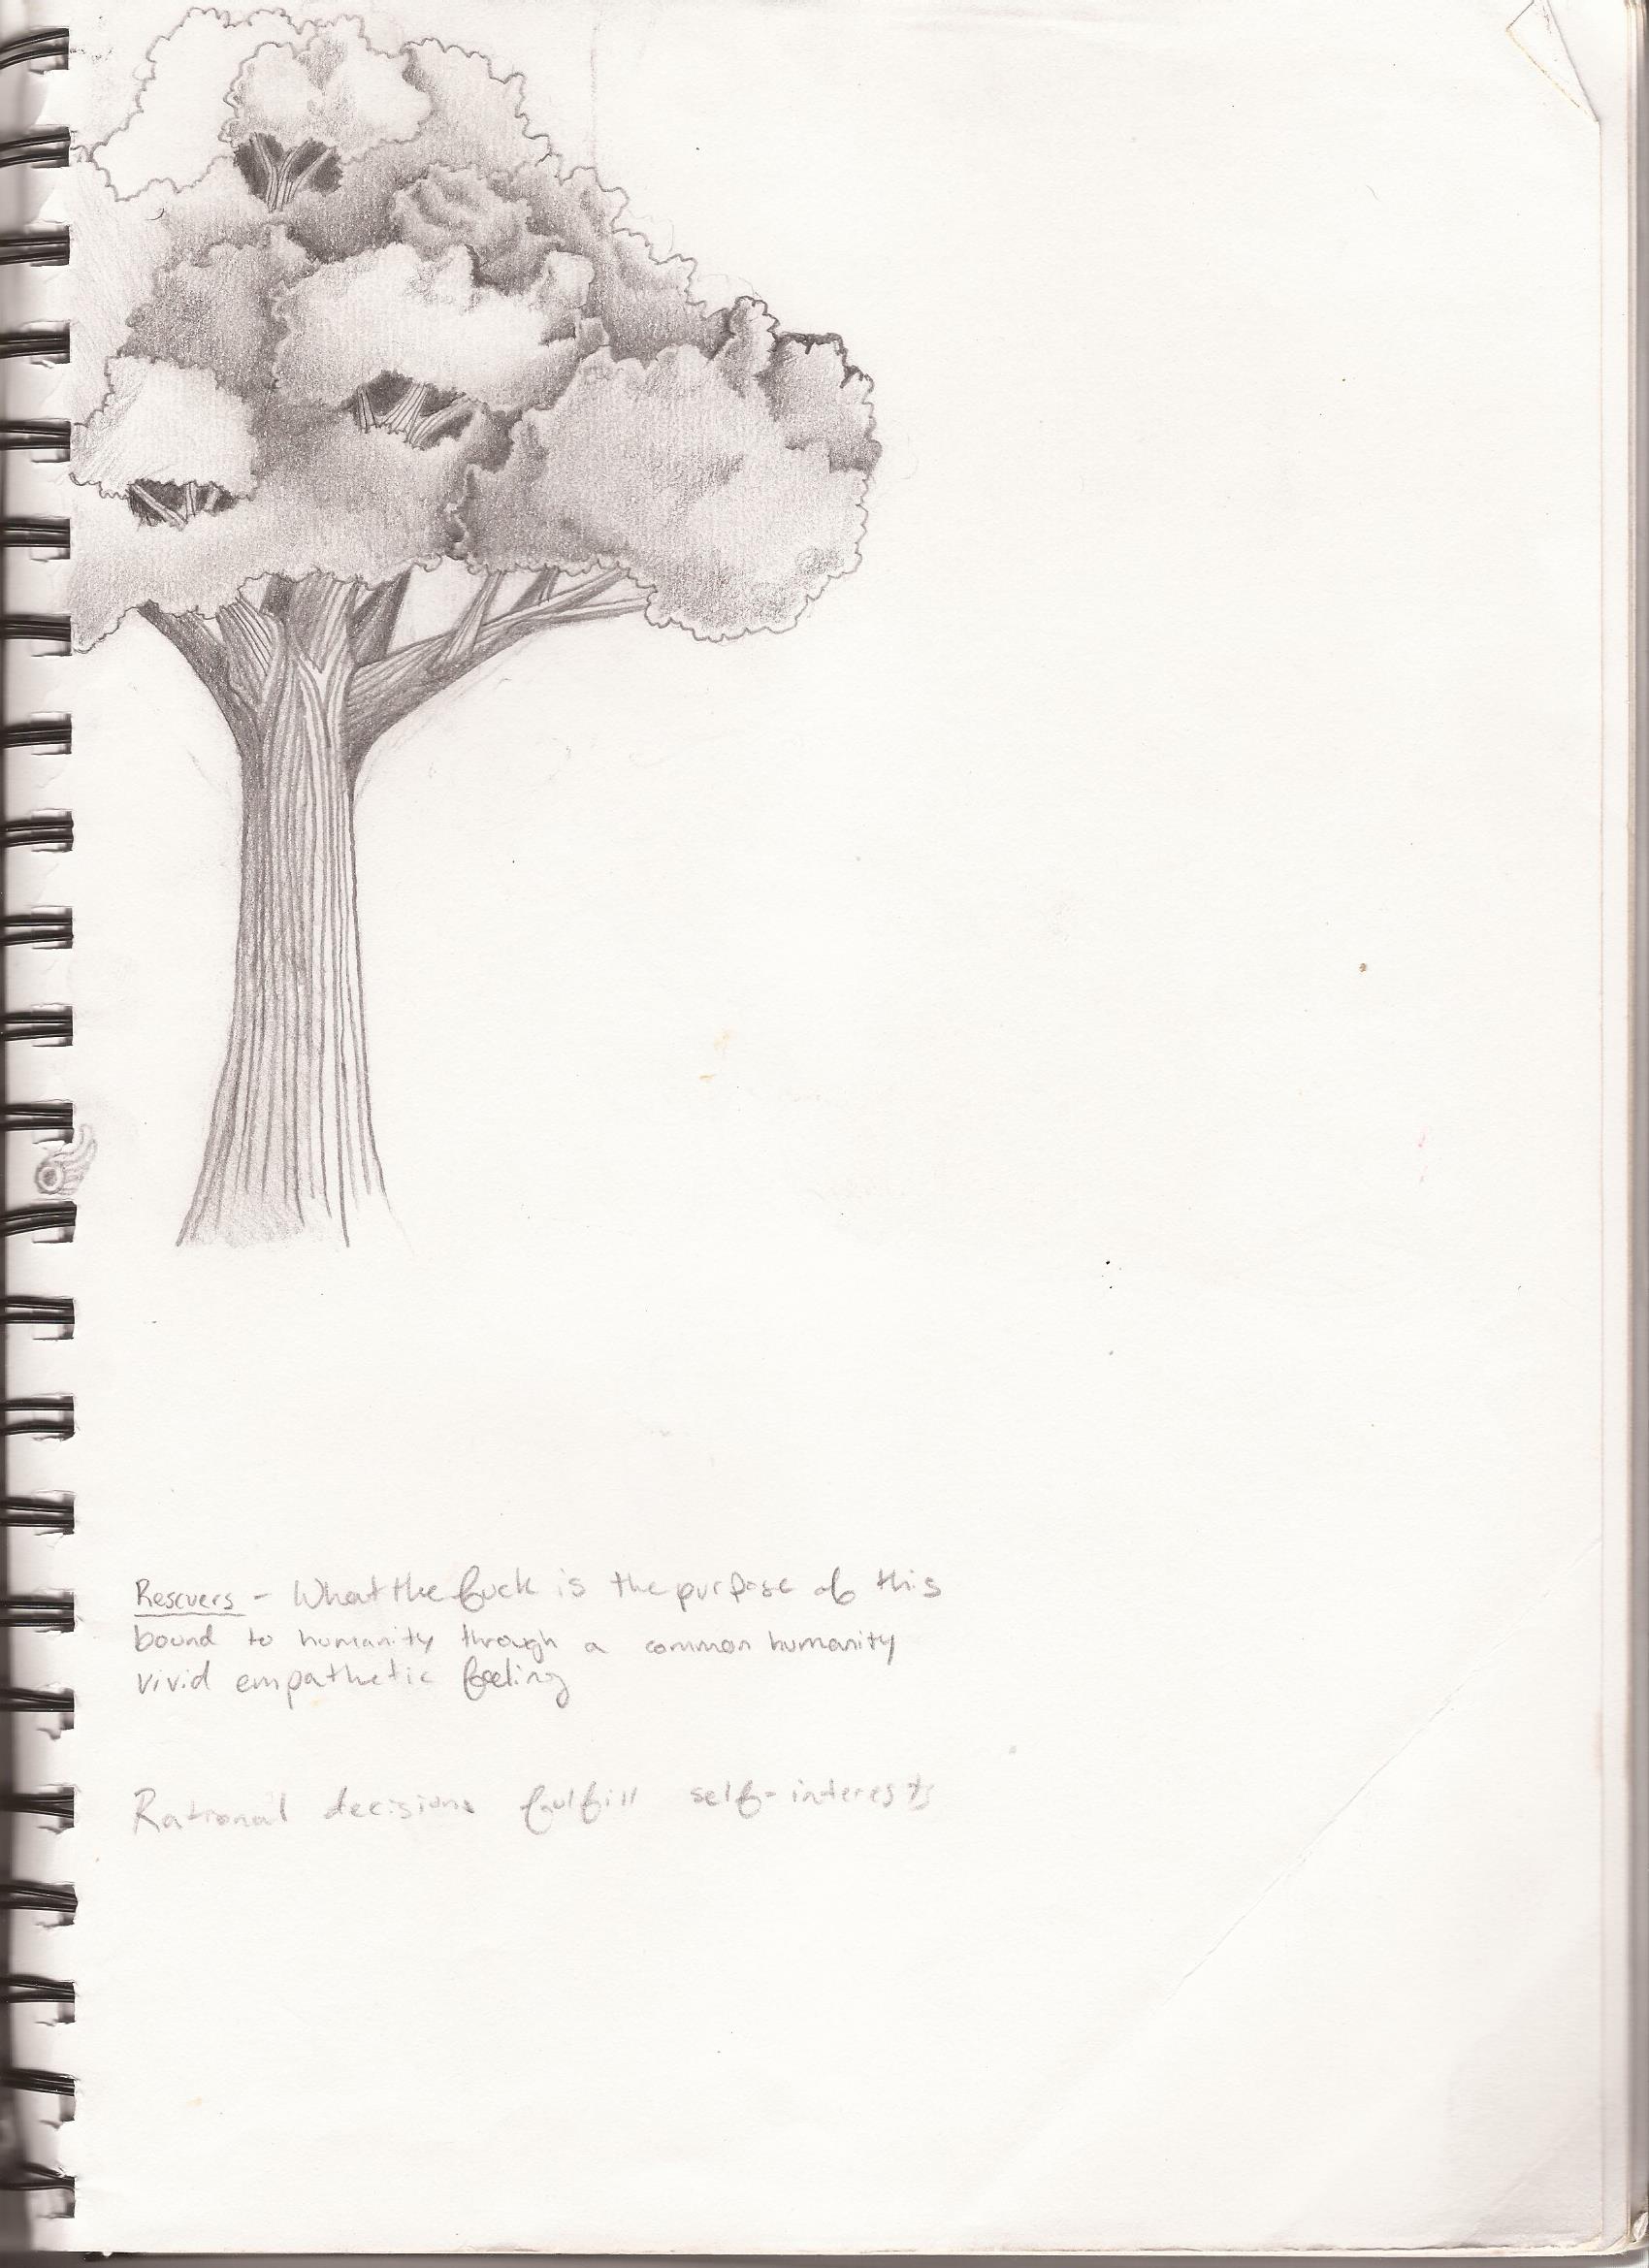 Rescuers - What the fuck is the purpose of this
bound to humanity through a common humanity
vivid empathetic feeling
Rational decisions fulfill self-interests